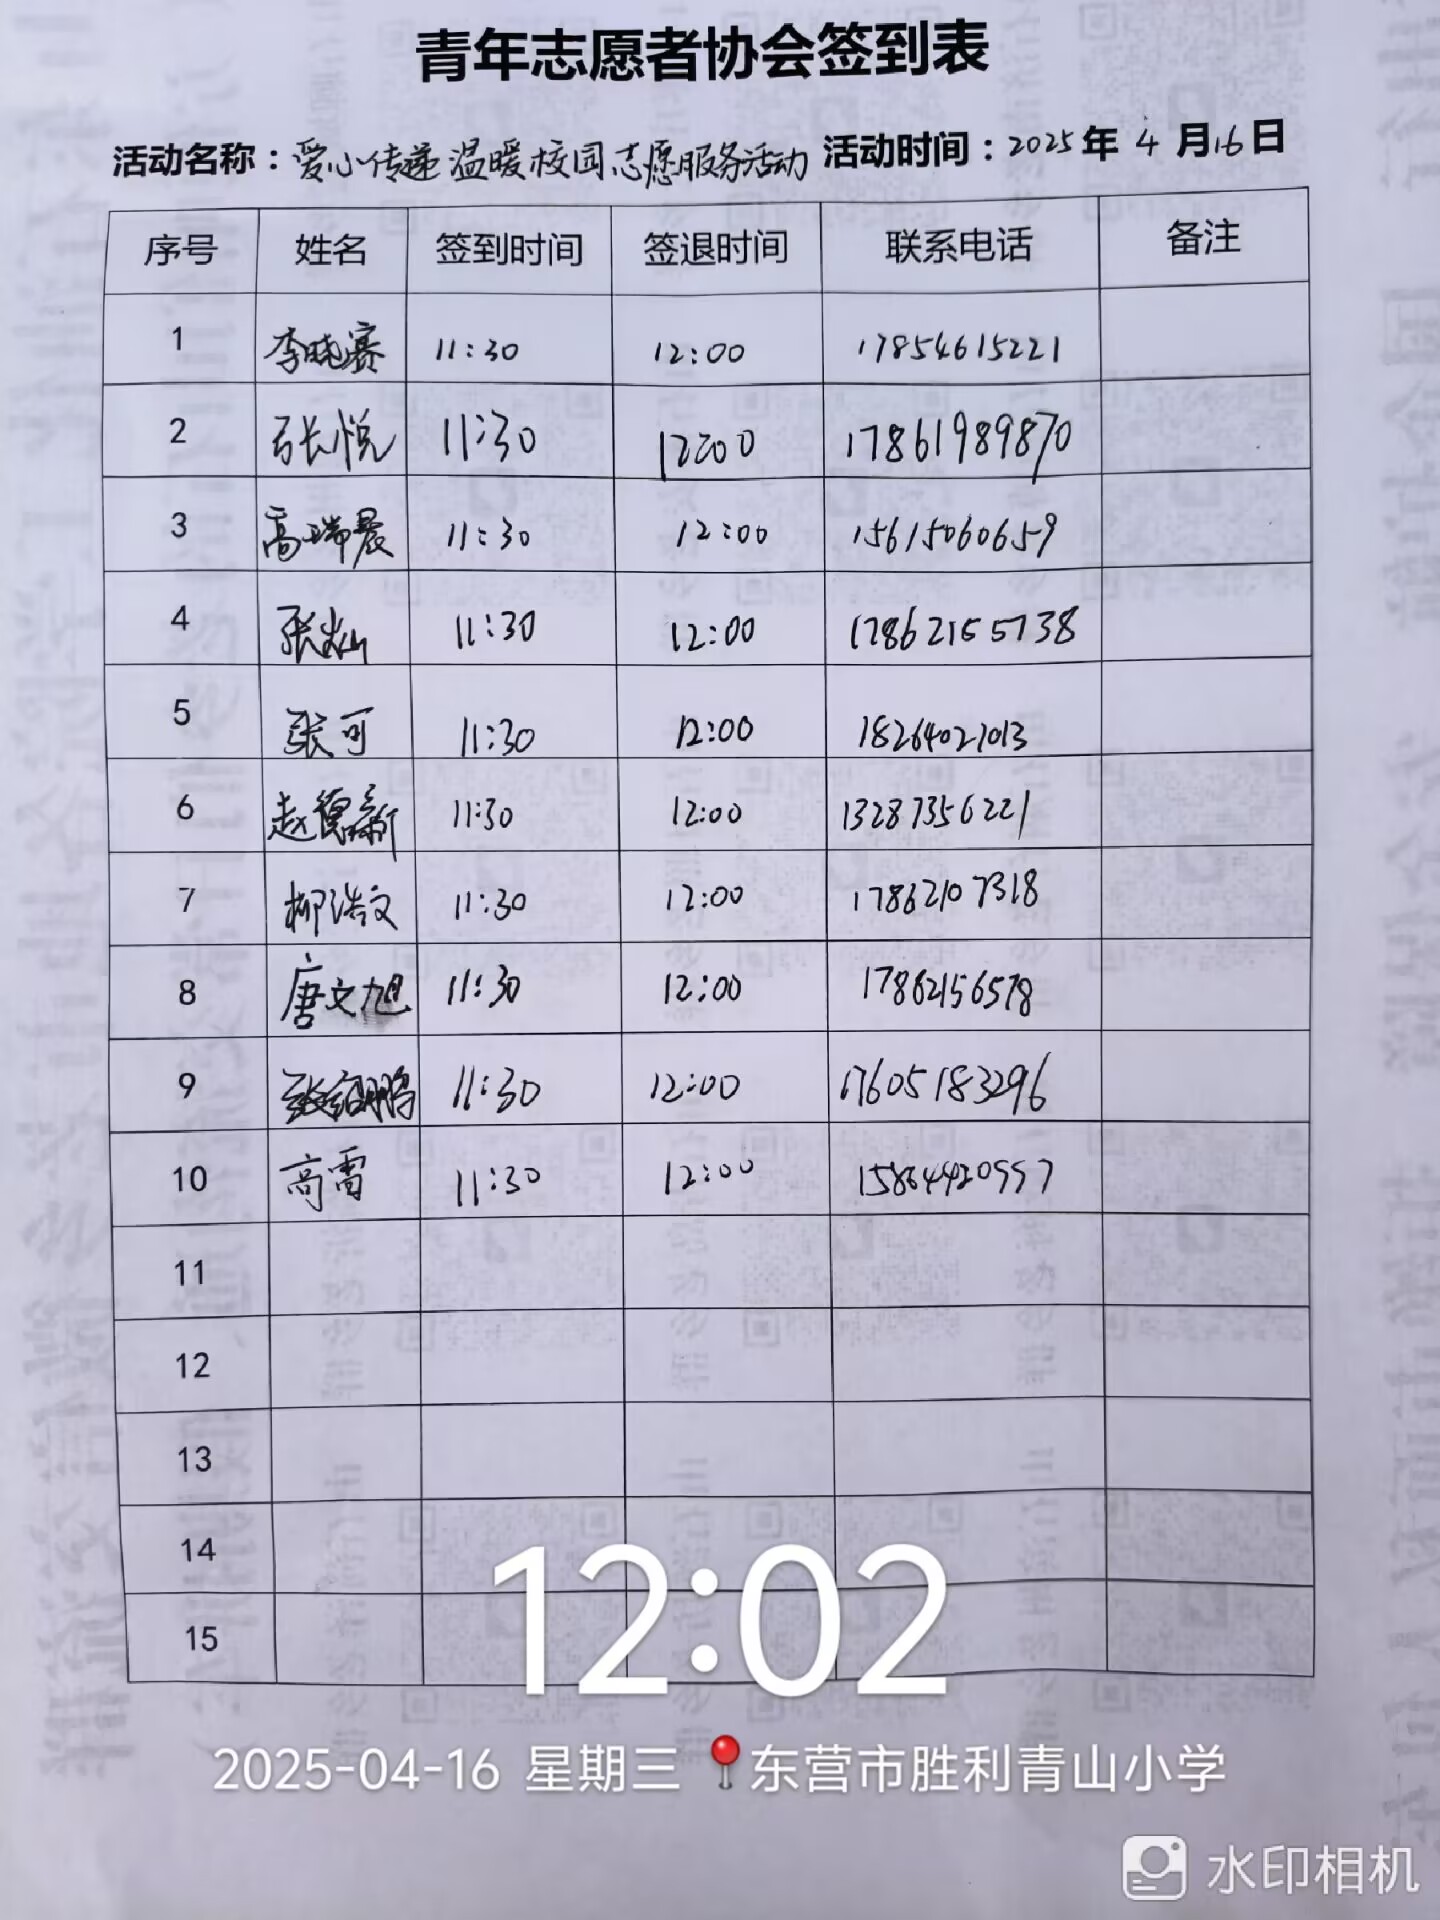 青年志愿者协会签到表
活动名称：爱心传递温暖校园志愿服务活动 活动时间：2025年4月16日
序号 姓名 签到时间 签退时间 联系电话 备注
1 李晓赛 11:30 12:00 17854615221
2 张悦 11:30 12:00 17861989870
3 高瑞晨 11:30 12:00 15615060659
4 张灿 11:30 12:00 17862155738
5 张可 11:30 12:00 18264021013
6 赵德新 11:30 12:00 13287356221
7 柳浩文 11:30 12:00 17862107318
8 唐文旭 11:30 12:00 17862156578
9 张绍鹏 11:30 12:00 17605183296
10 高雷 11:30 12:00
11
12
13
14
15
12:02
2025-04-16 星期三 东营市胜利青山小学
水印相机